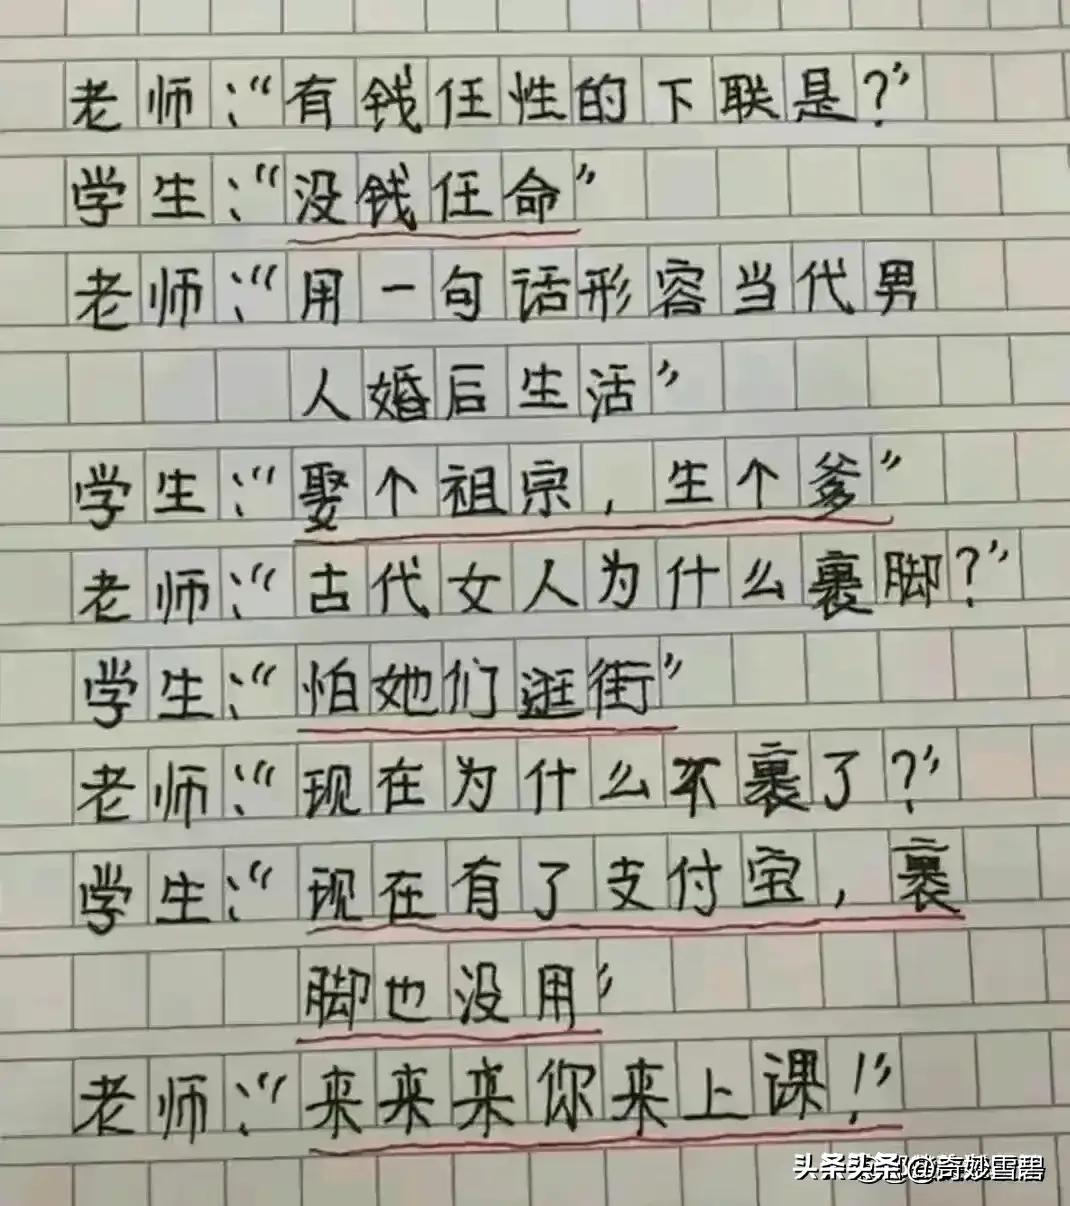 老师：“有钱任性的下联是？”
学生：“没钱任命”
老师：“用一句话形容当代男
人婚后生活”
学生：“娶个祖宗，生个爹”
老师：“古代女人为什么裹脚？”
学生：“怕她们逛街”
老师：“现在为什么不裹了？”
学生：“现在有了支付宝，裹
脚也没用”
老师：“来来来你来上课！”
头条 @奇妙雪碧